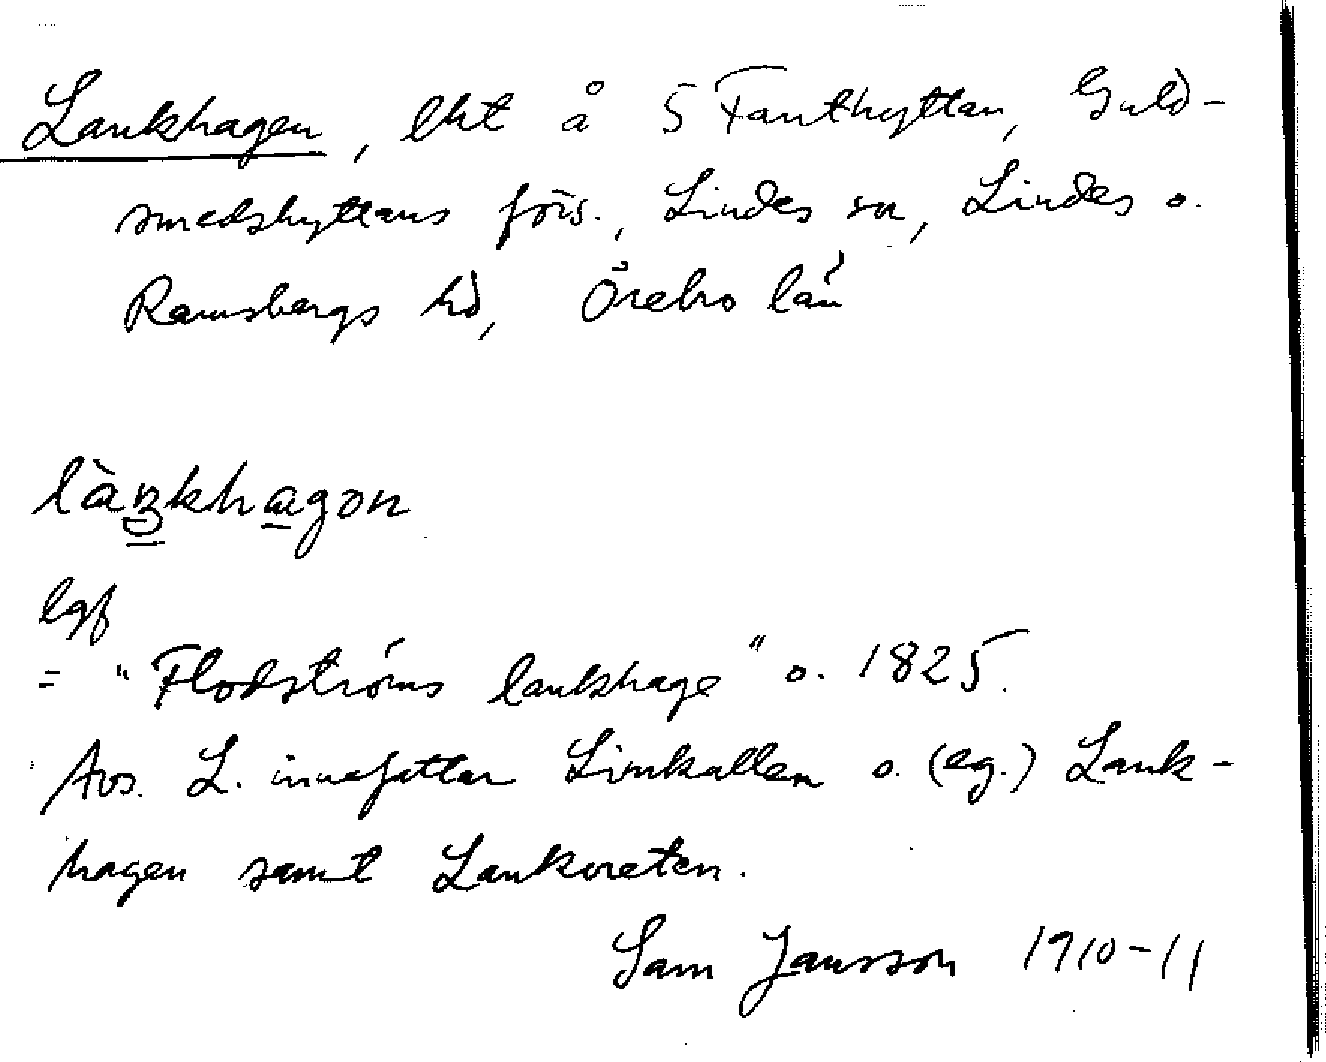 Lankhagen, lht å S Fanthyttan, Guld-
smedshyttans förs., Lindes sn, Lindes o.
Ramsbergs hd, Örebro län
làŋkhagon
lgf
= "Flodströms lankhage" o. 1825.
Avs. L. innefattar Linkallen o. (eg.) Lank-
hagen samt Lankvreten.
Sam Jansson 1910-11